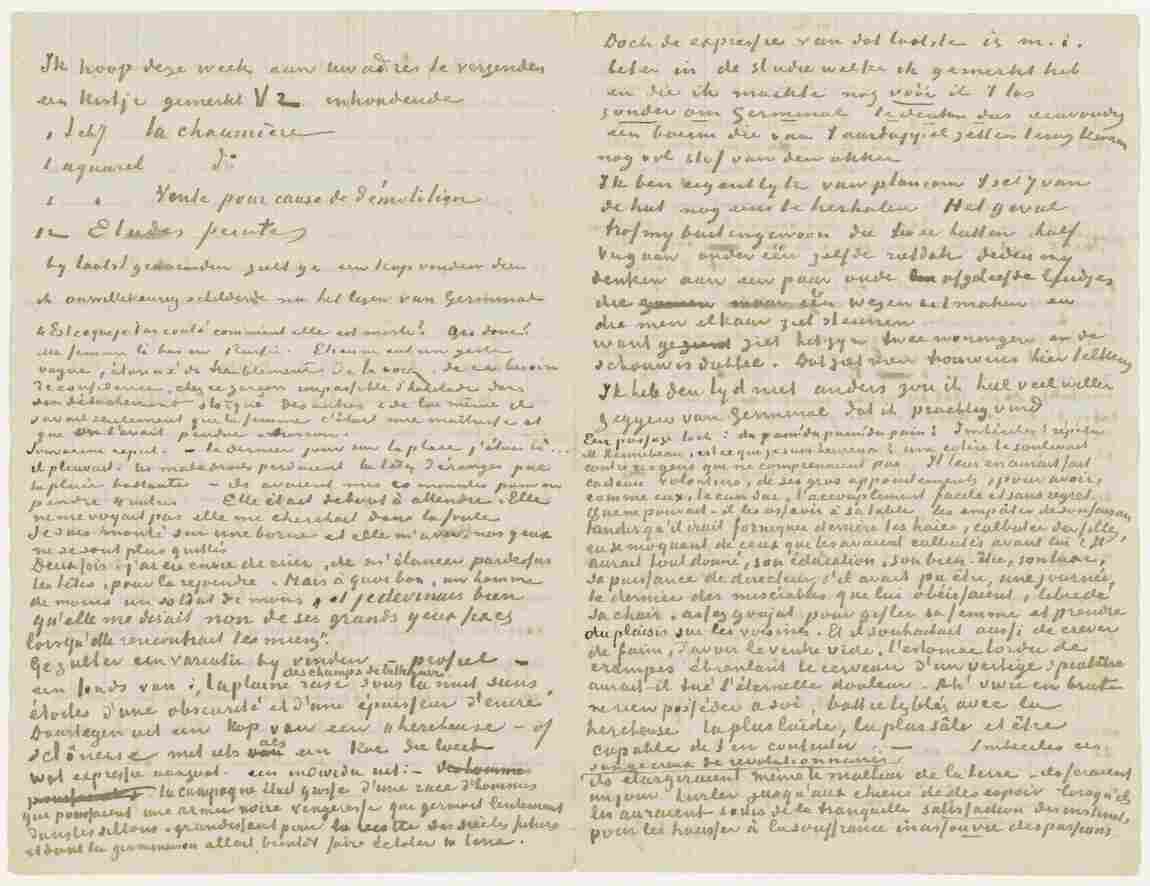 Ik hoop deze week aan uw adres te verzenden
een kistje gemerkt V2 inhoudende
1 schij la chaumière
1 aquarel do
1 " Vente pour cause de démolition
12 Etudes peintes
by laatstgenoemden zult ge een kop vinden dien
ik onwillekeurig schilderde na het lezen van Germinal
Est-ce que je t'ai conté comment elle est morte? Qui donc?
Ma femme là bas en Russie. Etienne eut un geste
vague, étonné du tremblement de la voix, de ce besoin
de confidence, chez ce garçon impassible d'habitude dans
son détachement stoïque des autres & de lui même il
savait seulement que la femme était une maîtresse et
que on l'avait pendue à Moscou.
Souvarine reprit. – le dernier jour sur la place j'étais là ...
il pleuvait. les maladroits perdaient la tête, dérangés par
la pluie battante – ils avaient mis 20 minutes pour en
pendre 4 autres. Elle était debout à attendre. Elle
ne me voyait pas elle me cherchait dans la foule
Je suis monté sur une borne et elle m'a vu, nos yeux
ne se sont plus quittés
Deux fois j'ai eu envie de crier, de m'élancer pardessus
les têtes, pour la rejoindre. Mais à quoi bon, un homme
de moins un soldat de moins, et je devinais bien
qu'elle me disait non de ses grands yeux fixes
lorsqu'elle rencontrait les miens".
Ge zult er een variatie by vinden profiel –
des champs de betteraves
een fonds van: la plaine rase sous la nuit sans
étoiles d'une obscurité et d'une épaisseur d'encre
Daartegen uit een kop van een hercheuse – of
sclôneuse met iets als een koe die loeit
wat expressie aangaat. een individu uit: –
la campagne était grosse d'une race d'hommes
qui poussaient une armée noire vengeresse qui germait lentement
dans les sillons. grandissant pour les récoltes des siècles futurs
et dont la germination allait bientôt faire éclater la terre.
Doch de expressie van dat laatste is m.i.
beter in de studie welke ik gemerkt heb
en die ik maakte nog vóór ik 't las
zonder om Germinal te denken dus eenvoudig
een boerin die van 't aardappelzetten terug kwam
nog vol stof van den akker
Ik ben eigentlyk van plan om 't schij van
de hut nog eens te herhalen Het geval
trof my buitengewoon die twee hutten half
vergaan onder één zelfde rietdak deden my
denken aan een paar oude afgeleefde luidjes
die maar één wezen uitmaken en
die men elkaar ziet steunen
want ge ziet het zyn twee woningen en de
schouw is dubbel. Dat ziet men trouwens hier telkens
Ik heb den tyd niet anders zou ik heel veel willen
zeggen van Germinal dat ik prachtig vind
Een passage toch: du pain! du pain! du pain! Imbéciles! répéta
M. Hennebeau, est ce que je suis heureux? une colère le soulevait
contre ces gens qui ne comprenaient pas. Il leur en aurait fait
cadeau volontiers, de ses gros appointements, pour avoir,
comme eux, le cuir dur, l'accouplement facile et sans regret.
Que ne pouvait-il les asseoir à sa table, les empâter de son faisan,
tandis qu'il irait forniquer derrière les haies, culbuter des filles,
en se moquant de ceux qui les avaient culbutées avant lui! Il
aurait tout donné, son éducation, son bien-être, son luxe,
sa puissance de directeur, s'il avait pu être, une journée,
le dernier des misérables qui lui obéissaient, libre de
sa chair, assez goujat pour gifler sa femme et prendre
du plaisir sur les voisines. Et il souhaitait aussi de crever
de faim, d'avoir le ventre vide, l'estomac tordu de
crampes ébranlant le cerveau d'un vertige: peut-être
aurait-il tué l'éternelle douleur. Ah! vivre en brute
ne rien posséder à soi, battre les blés avec la
hercheuse la plus laide, la plus sale et être
capable de s'en contenter. – Imbéciles ces
songe creux de révolutionnaires
ils élargiraient même le malheur de la terre – ils feraient
un jour hurler jusqu'aux chiens de désespoir lorsqu'ils
les auraient sortis de la tranquille satisfaction des instincts
pour les hausser à la souffrance inassouvie des passions